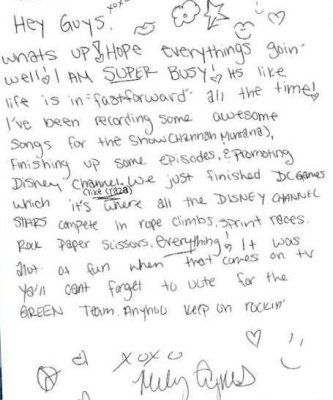 xoxo
Hey Guys.
whats up! Hope everythings goin'
well! I AM SUPER BUSY! its like
life is in "fastforward" all the time!
I've been recording some awesome
songs for the show (Hannah Montana),
finishing up some episodes, & promoting
Disney Channel (like craza). We just finished DC Games
which it's where all the DISNEY CHANNEL
STARS compete in rope climbs, sprint races.
Rock paper scissors, everything! It was
alot of fun when that comes on tv
ya'll cant forget to vote for the
GREEN Team. Anyhoo keep on rockin'
xoxo
Miley Cyrus